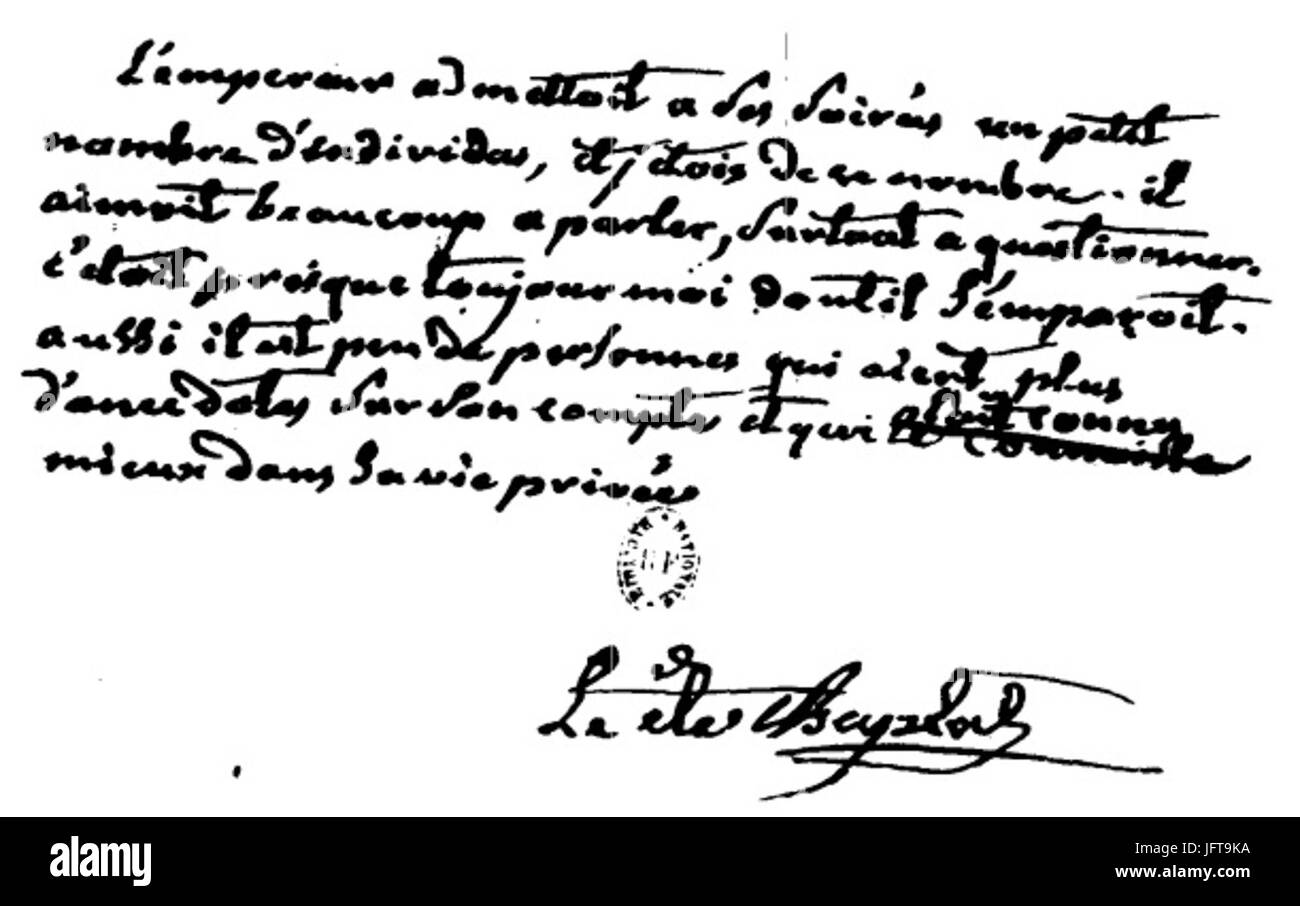 L'empereur admettoit a ses soirées un petit
nombre d'individas, et j'etois de ce nombre. il
aimoit beaucoup a parler, surtout a questionner.
c'etoit presque toujour moi dont il s'emparoit.
aussi il est peu de personnes qui aient plus
d'anecdotes sur son compte et qui l'ont connu
mieux dans sa vie privée
BIBLIOTH NATIONALE
Le
alamy
Image ID: JFT9KA
www.alamy.com